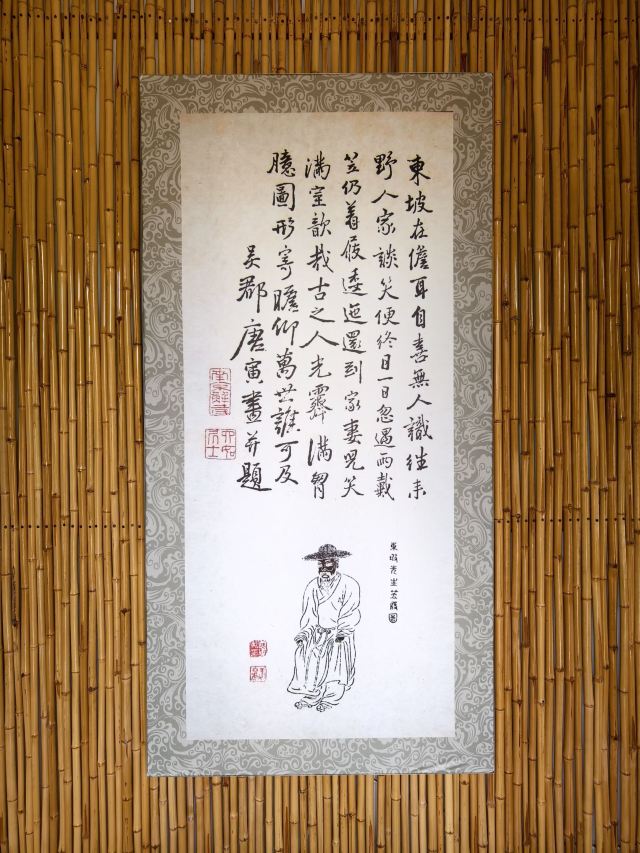 東坡在儋耳自喜無人識往來
野人家談笑便終日一日忽遇雨戴
笠仍着屐逶迤還到家妻兒笑
滿室歆哉古之人光霽滿胷
臆圖形寄瞻仰萬世誰可及
吳郡唐寅畫并題
六如居士
東坡先生笠屐圖